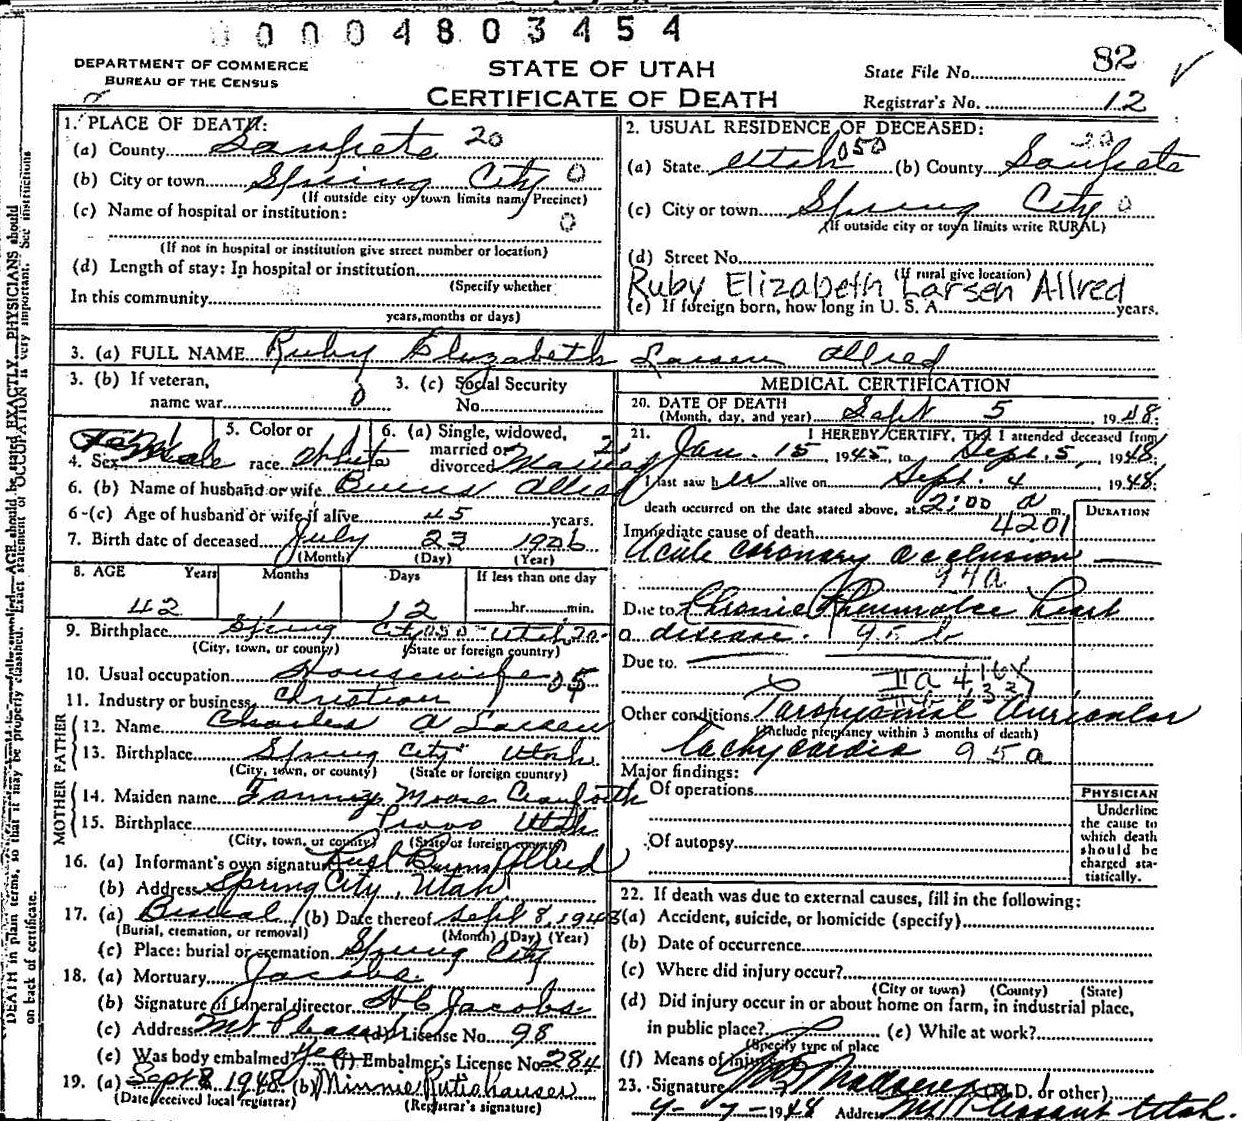 00004803454
DEPARTMENT OF COMMERCE
BUREAU OF THE CENSUS
STATE OF UTAH
CERTIFICATE OF DEATH
State File No. 82
Registrar's No. 12
1. PLACE OF DEATH:
(a) County Sanpete 20
(b) City or town Spring City 0
(If outside city or town limits name Precinct)
(c) Name of hospital or institution:
0
(If not in hospital or institution give street number or location)
(d) Length of stay: In hospital or institution
(Specify whether
In this community
years, months or days)
2. USUAL RESIDENCE OF DECEASED:
(a) State Utah 050 (b) County Sanpete 20
(c) City or town Spring City 0
(If outside city or town limits write RURAL)
(d) Street No.
(If rural give location)
Ruby Elizabeth Larsen Allred
(e) If foreign born, how long in U. S. A. years.
3. (a) FULL NAME Ruby Elizabeth Larsen Allred
3. (b) If veteran,
name war 0
3. (c) Social Security
No.
4. Sex Female 1
5. Color or
race White 1
6. (a) Single, widowed,
married or
divorced Married 2
6. (b) Name of husband or wife Burns Allred
6-(c) Age of husband or wife if alive 45 years.
7. Birth date of deceased July 23 1906
(Month) (Day) (Year)
8. AGE Years Months Days If less than one day
42 1 12 hr. min.
9. Birthplace Spring City 050 Utah 20
(City, town, or county) (State or foreign country)
10. Usual occupation Housewife 05
11. Industry or business Christian
FATHER
12. Name Charles A Larsen
13. Birthplace Spring City Utah
(City, town, or county) (State or foreign country)
MOTHER
14. Maiden name Fanny Moore
15. Birthplace Provo Utah
(City, town, or county) (State or foreign country)
16. (a) Informant's own signature Burns Allred
(b) Address Spring City, Utah
17. (a) Burial (b) Date thereof Sept 8, 1948
(Burial, cremation, or removal) (Month) (Day) (Year)
(c) Place: burial or cremation Spring City
18. (a) Mortuary Jacobs
(b) Signature of funeral director H C Jacobs
(c) Address Mt Pleasant (d) License No. 98
(e) Was body embalmed? Yes (f) Embalmer's License No. 284
19. (a) Sept 8 1948 (b) Minnie
(Date received local registrar) (Registrar's signature)
MEDICAL CERTIFICATION
20. DATE OF DEATH
(Month, day, and year) Sept 5 1948
21. I HEREBY CERTIFY, That I attended deceased from
Jan. 15 1945, to Sept. 5, 1948
I last saw her alive on Sept. 4 1948;
death occurred on the date stated above, at 2:00 a m.
DURATION
Immediate cause of death 4201
Acute coronary occlusion
94a
Due to Chronic Rheumatic heart
disease. 95 b
Due to
II a
Other conditions Paroxysmal Auricular
(Include pregnancy within 3 months of death)
tachycardia 95a
Major findings:
Of operations
Of autopsy
PHYSICIAN
Underline
the cause to
which death
should be
charged sta-
tistically.
22. If death was due to external causes, fill in the following:
(a) Accident, suicide, or homicide (specify)
(b) Date of occurrence
(c) Where did injury occur?
(City or town) (County) (State)
(d) Did injury occur in or about home on farm, in industrial place,
in public place? (e) While at work?
(Specify type of place
(f) Means of injury
23. Signature Madsen (M.D. or other)
9-7-1948 Address Mt Pleasant Utah.
DEATH in plain terms, so that it may be properly classified. Exact statement of OCCUPATION is very important. See instructions
on back of certificate.
AGE should be stated EXACTLY. PHYSICIANS should